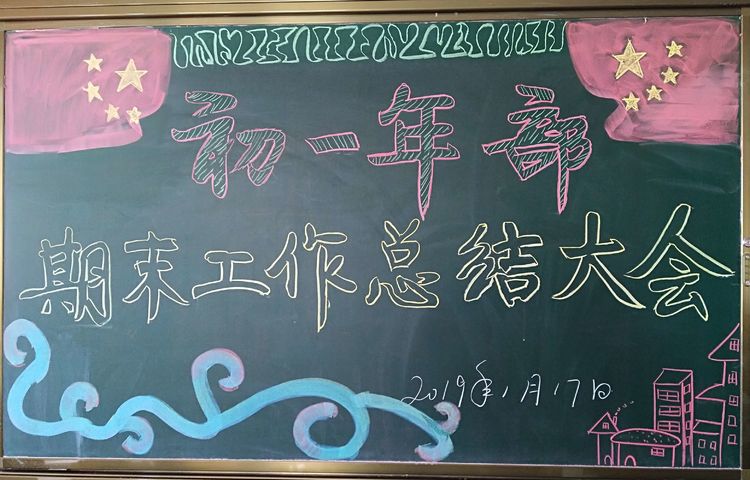 初一年部
期末工作总结大会
2019年1月17日